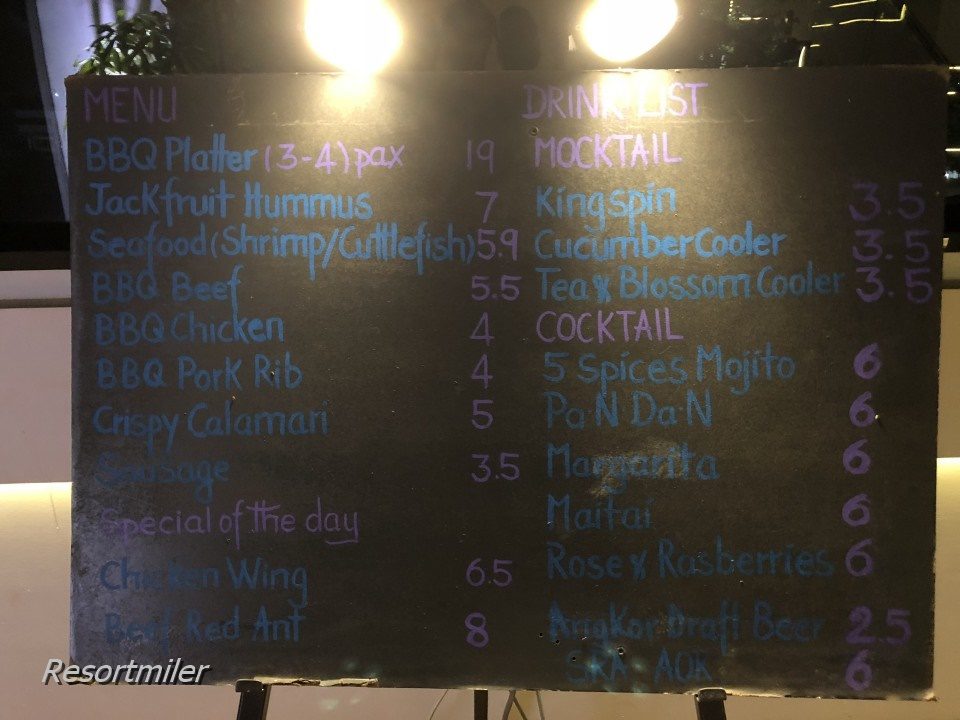 MENU
BBQ Platter (3-4) pax 19
Jackfruit Hummus 7
Seafood (Shrimp/Cuttlefish) 5.9
BBQ Beef 5.5
BBQ Chicken 4
BBQ Pork Rib 4
Crispy Calamari 5
Sausage 3.5
Special of the day
Chicken Wing 6.5
Beef Red Ant 8
DRINK LIST
MOCKTAIL
Kingspin 3.5
Cucumber Cooler 3.5
Tea & Blossom Cooler 3.5
COCKTAIL
5 Spices Mojito 6
Pa N Da N 6
Margarita 6
Maitai 6
Rose & Rasberries 6
Angkor Draft Beer 2.5
6
Resortmiler